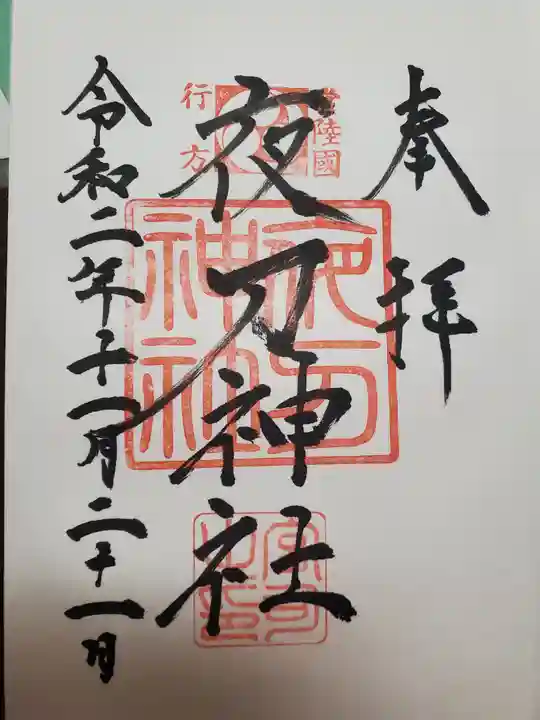 奉拝
常陸國
行方
夜刀神社
夜刀神社
宮司之印
令和二年十一月二十一日